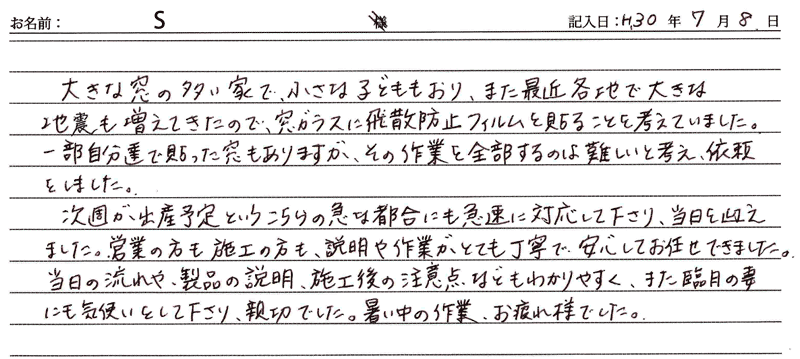 お名前： S 様 記入日：H30 年 7 月 8 日
大きな窓の多い家で、小さな子どももおり、また最近各地で大きな
地震も増えてきたので、窓ガラスに飛散防止フィルムを貼ることを考えていました。
一部自分達で貼った窓もありますが、その作業を全部するのは難しいと考え、依頼
をしました。
次週が出産予定というこちらの急な都合にも急速に対応して下さり、当日を迎え
ました。営業の方も施工の方も、説明や作業がとても丁寧で安心してお任せできました。
当日の流れや、製品の説明、施工後の注意点などもわかりやすく、また臨月の妻
にも気使いをして下さり、親切でした。暑い中の作業、お疲れ様でした。